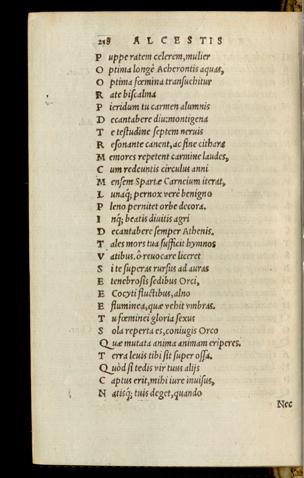 218 ALCESTIS
P uppe ratem celerem, mulier
O ptima longè Acherontis aquas,
O ptima fœmina transuehitur
R ate biscalma
P ieridum tu carmen alumnis
D ecantabere diu: montigena
T e testudine septem neruis
R esonante canent, ac sine cithara
M emores repetent carmine laudes,
C um redeuntis circulus anni
M ensem Spartæ Carneium iterat,
L unaq; pernox verè benigno
P leno pernitet orbe decora.
I nq; beatis diuitis agri
D ecantabere semper Athenis.
T ales mors tua sufficit hymnos
V atibus. ô reuocare liceret
S i te superas rursus ad auras
E tenebrosis sedibus Orci,
E Cocyti fluctibus, alno
E fluminea, quæ vehit vmbras.
T u fœminei gloria sexus
S ola reperta es, coniugis Orco
Q uæ mutata anima animam eriperes.
T erra leuis tibi sit super ossa.
Q uòd si tedis vir tuus alijs
C aptus erit, mihi iure inuisus,
N atisq; tuis deget, quando
Nec